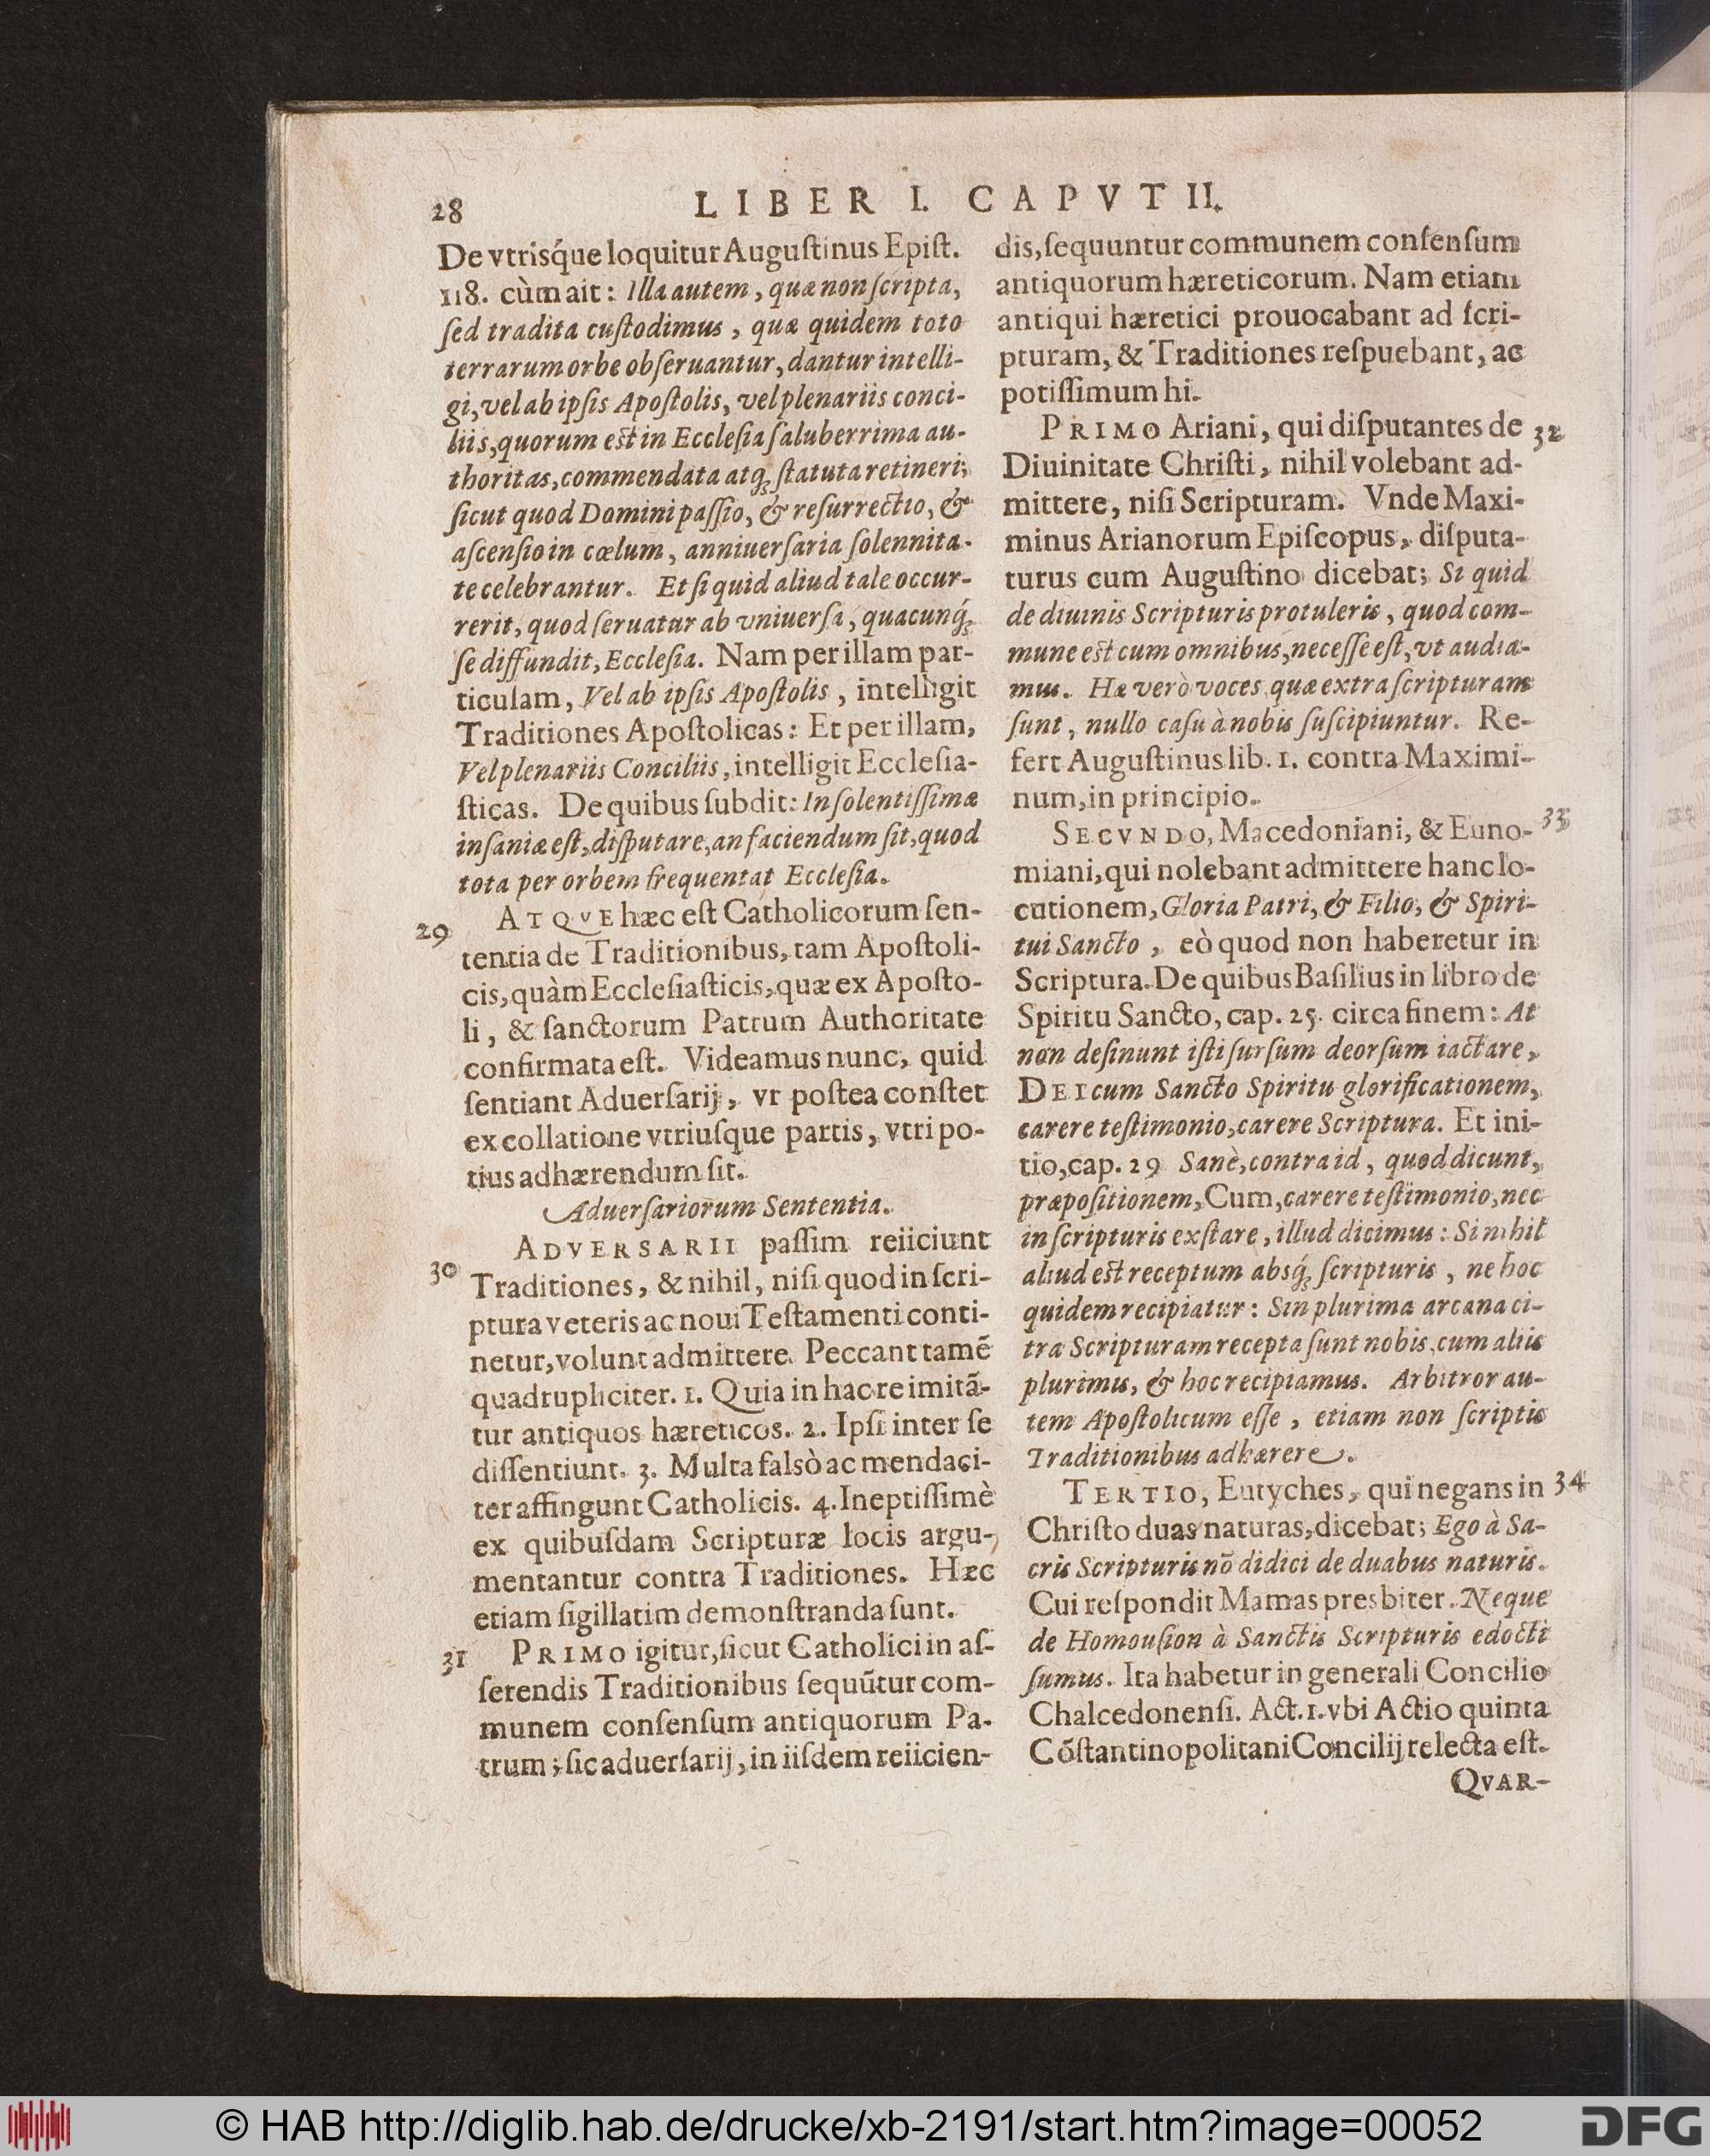 28
LIBER I. CAPVT II.
De vtrisq́ue loquitur Auguſtinus Epiſt.
118. cùm ait: Illa autem, quæ non ſcripta,
ſed tradita cuſtodimus, quæ quidem toto
terrarum orbe obſeruantur, dantur intelli-
gi, vel ab ipſis Apoſtolis, vel plenariis conci-
liis, quorum eſt in Eccleſia ſaluberrima au-
thoritas, commendata atq; ſtatuta retineri;
ſicut quod Domini paſſio, & reſurrectio, &
aſcenſio in cœlum, anniuerſaria ſolennita-
te celebrantur. Et ſi quid aliud tale occur-
rerit, quod ſeruatur ab vniuerſa, quacunq́;
ſe diffundit, Eccleſia. Nam per illam par-
ticulam, Vel ab ipſis Apoſtolis, intelligit
Traditiones Apoſtolicas: Et per illam,
Vel plenariis Conciliis, intelligit Eccleſia-
ſticas. De quibus ſubdit: Inſolentiſſimæ
inſaniæ eſt, diſputare, an faciendum ſit, quod
tota per orbem frequentat Eccleſia.
29 ATQVE hæc eſt Catholicorum ſen-
tentia de Traditionibus, tam Apoſtoli-
cis, quàm Eccleſiaſticis, quæ ex Apoſto-
li, & ſanctorum Patrum Authoritate
confirmata eſt. Videamus nunc, quid
ſentiant Aduerſarij, vt poſtea conſtet
ex collatione vtriuſque partis, vtri po-
tius adhærendum ſit.
Aduerſariorum Sententia.
ADVERSARII paſſim reiiciunt
30 Traditiones, & nihil, niſi quod in ſcri-
ptura veteris ac noui Teſtamenti conti-
netur, volunt admittere. Peccant tamẽ
quadrupliciter. 1. Quia in hac re imitã-
tur antiquos hæreticos. 2. Ipſi inter ſe
diſſentiunt. 3. Multa falsò ac mendaci-
ter affingunt Catholicis. 4. Ineptiſſimè
ex quibuſdam Scripturæ locis argu-
mentantur contra Traditiones. Hæc
etiam ſigillatim demonſtranda ſunt.
31 PRIMO igitur, ſicut Catholici in aſ-
ſerendis Traditionibus ſequũtur com-
munem conſenſum antiquorum Pa-
trum; ſic aduerſarij, in iiſdem reiicien-
dis, ſequuntur communem conſenſum
antiquorum hæreticorum. Nam etiam
antiqui hæretici prouocabant ad ſcri-
pturam, & Traditiones reſpuebant, ac
potiſſimum hi.
PRIMO Ariani, qui diſputantes de 32
Diuinitate Chriſti, nihil volebant ad-
mittere, niſi Scripturam. Vnde Maxi-
minus Arianorum Epiſcopus, diſputa-
turus cum Auguſtino dicebat; Si quid
de diuinis Scripturis protuleris, quod com-
mune eſt cum omnibus, neceſſe eſt, vt audia-
mus. Hæ verò voces quæ extra ſcripturam
ſunt, nullo caſu à nobis ſuſcipiuntur. Re-
fert Auguſtinus lib. 1. contra Maximi-
num, in principio.
SECVNDO, Macedoniani, & Euno- 33
miani, qui nolebant admittere hanc lo-
cutionem, Gloria Patri, & Filio, & Spiri-
tui Sancto, eò quod non haberetur in
Scriptura. De quibus Baſilius in libro de
Spiritu Sancto, cap. 25. circa finem: At
non deſinunt iſti ſurſum deorſum iactare,
DEI cum Sancto Spiritu glorificationem,
carere teſtimonio, carere Scriptura. Et ini-
tio, cap. 29 Sanè, contra id, quod dicunt,
præpoſitionem, Cum, carere teſtimonio, nec
in ſcripturis exſtare, illud dicimus: Si nihil
aliud eſt receptum absq́; ſcripturis, ne hoc
quidem recipiatur: Sin plurima arcana ci-
tra Scripturam recepta ſunt nobis, cum aliis
plurimis, & hoc recipiamus. Arbitror au-
tem Apoſtolicum eſſe, etiam non ſcriptis
Traditionibus adhærere.
TERTIO, Eutyches, qui negans in 34
Chriſto duas naturas, dicebat; Ego à Sa-
cris Scripturis nõ didici de duabus naturis.
Cui reſpondit Mamas presbiter. Neque
de Homouſion à Sanctis Scripturis edocti
ſumus. Ita habetur in generali Concilio
Chalcedonenſi. Act. 1. vbi Actio quinta
Cõſtantinopolitani Concilij relecta eſt.
QVAR-
© HAB http://diglib.hab.de/drucke/xb-2191/start.htm?image=00052
DFG